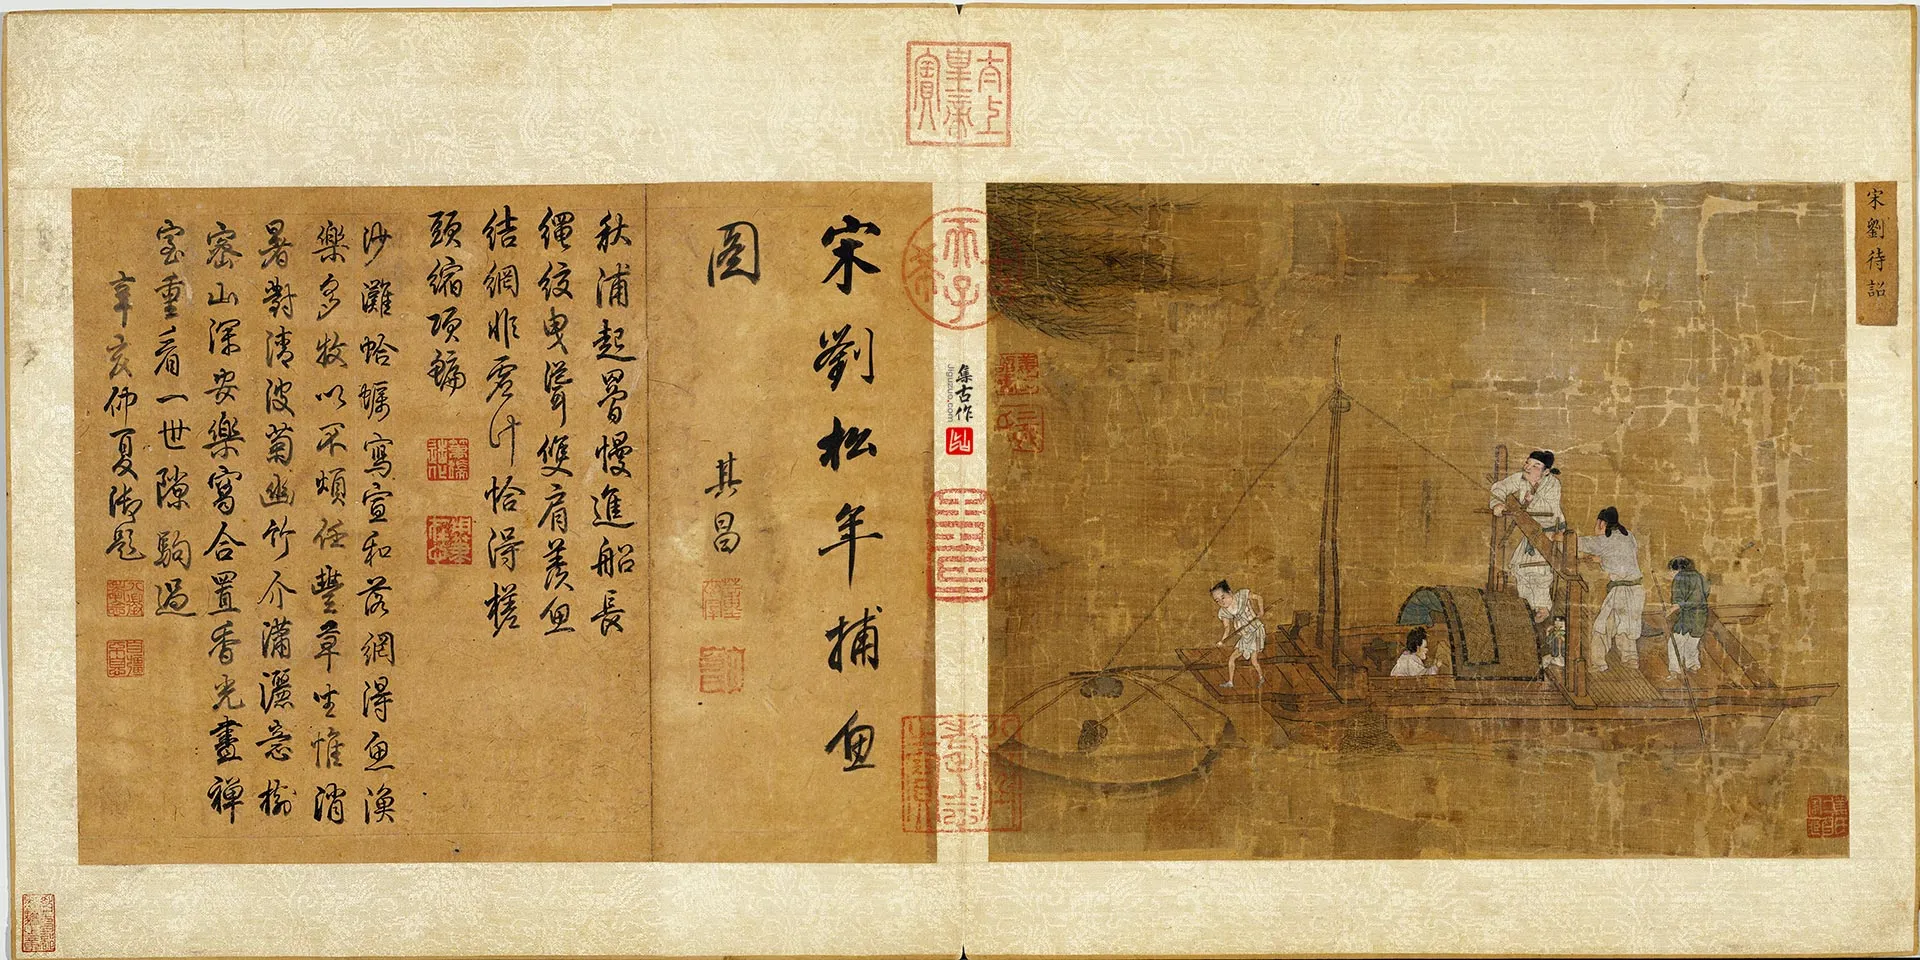 宋劉待詔
太上
皇帝
寶
古稀
天子
壽
集古作
jiguzuo.com
宋劉松年捕魚
圖
其昌
秋浦起罾慢進船長
繩絞曳聳雙肩羨魚
結網非虛計恰得槎
頭縮項鯿
沙灘蛤蠣寫宣和落網得魚漁
樂多牧以不煩任豐草坐惟消
暑對清波菊幽竹介瀟灑意樹
密山深安樂窩合置香光畫禪
室重看一世隙駒過
辛亥仲夏御題